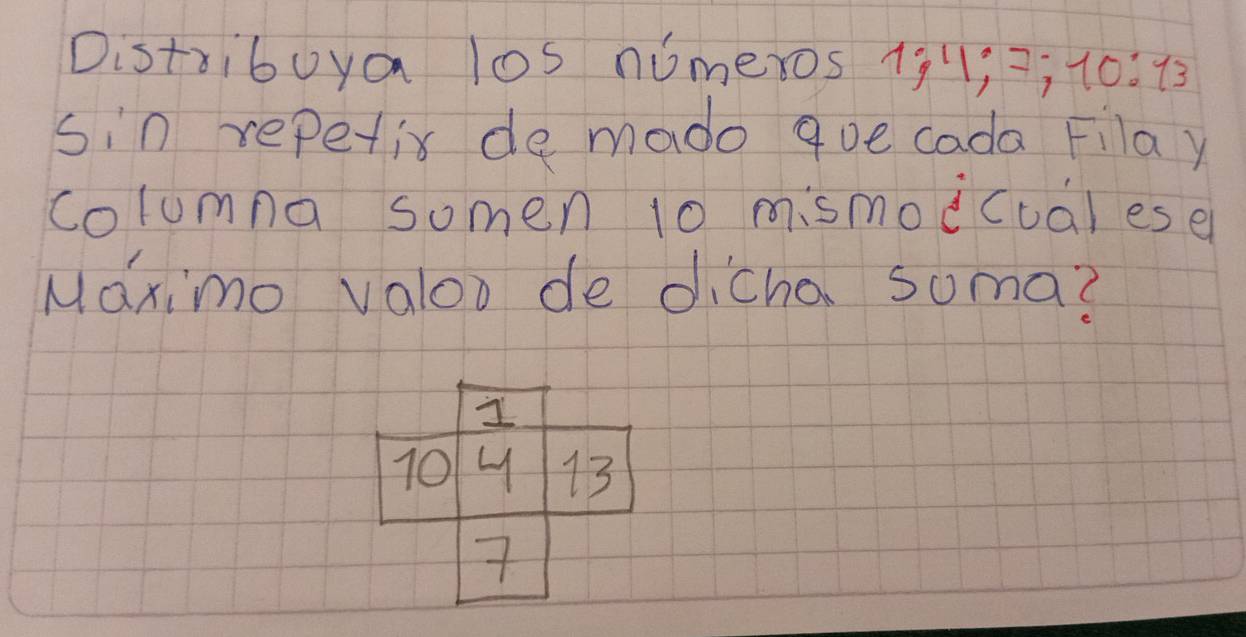 Distribuya los números 1; 4; 7; 10: 13
sin repetir de mado que cada Fila y
columna somen lo mismo ¿cuál es el
Máximo valor de dicha suma?
1
10 4 13
7